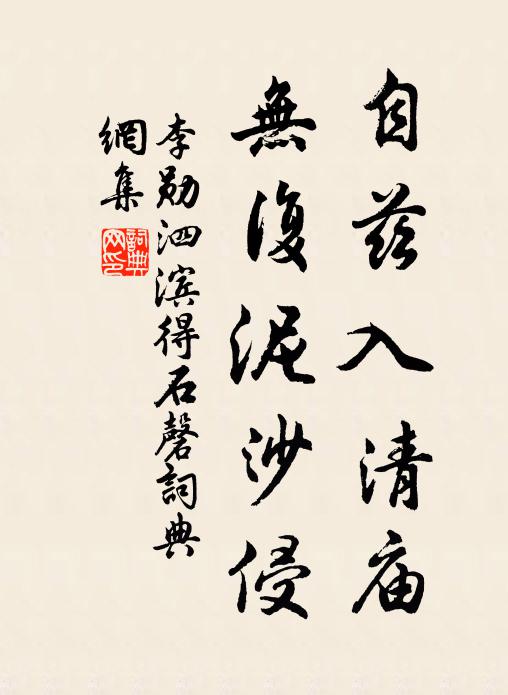 自茲入清庙
無復泥沙侵
李勋泗滨得石磬詞典
網集
詞典
网印